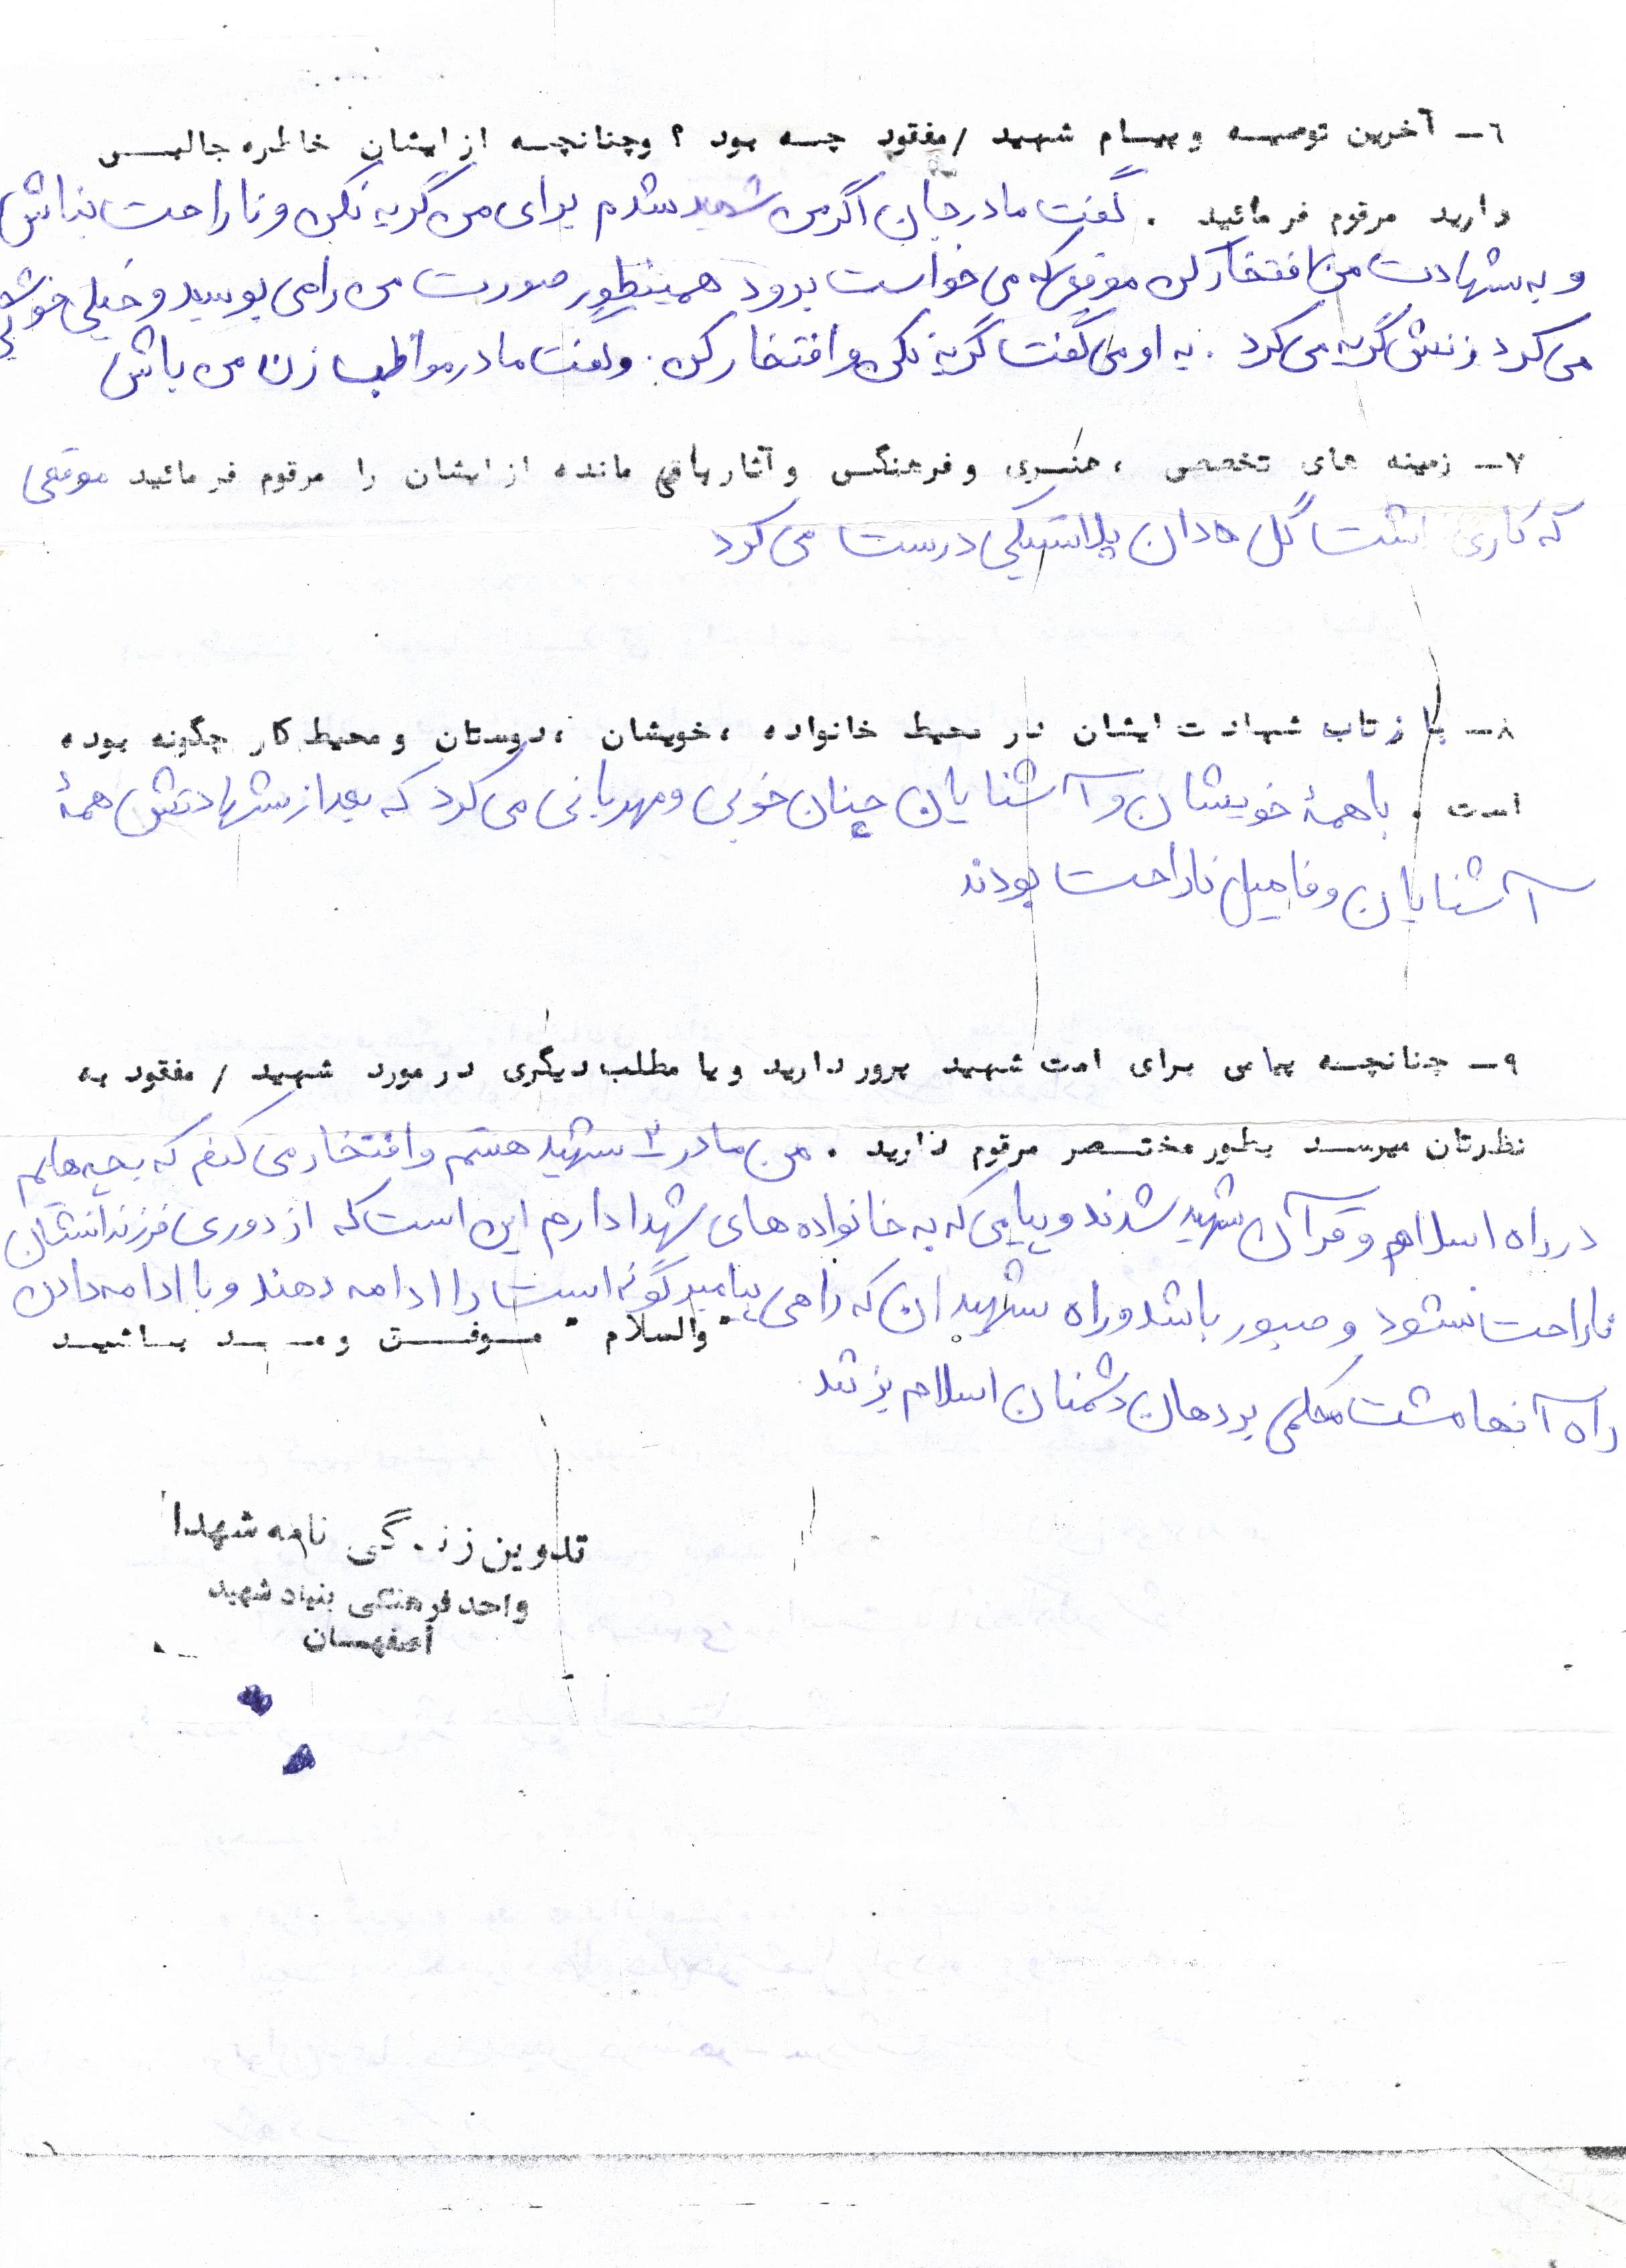 ۶ــ آخرین توصیــه و پیــام شهید / مفقود چــه بود ؟ وچنانچــه از ایشان خاطره جالبــی
دارید مرقوم فرمائید . گفت مادرجان اگر من شهید شدم برای من گریه نکن و ناراحت نباش
و به شهادت من افتخار کن موقعی که می خواست برود همینطور صورت من را می بوسید و خیلی
می کرد زنش گریه می کرد . به او می گفت گریه نکن و افتخار کن . و گفت مادر مواظب زن من باش
۷ــ زمینه های تخصصی ، هنــری و فرهنگــی و آثار باقی مانده از ایشان را مرقوم فرمائید موقعی
که کاری گل دان پلاستیکی درست می کرد
۸ــ بازتاب شهادت ایشان در محیط خانواده ، خویشان ، دوستان و محیط کار چگونه بوده
است . با همهٔ خویشان و آشنایان چنان خوبی و مهربانی می کرد که بعد از شهادتش همهٔ
آشنایان و فامیل ناراحت بودند
۹ــ چنانچــه پیامی برای امت شهید پرور دارید و یا مطلب دیگری در مورد شهید / مفقود به
نظرتان میرســد بطور مختــصر مرقوم دارید . من مادر ۲ شهید هستم و افتخار می کنم که بچه هایم
در راه اسلام و قرآن شهید شدند و پیامی که به خانواده های شهدا دارم این است که از دوری فرزندانشان
ناراحت نشود و صبور باشد و راه شهیدان که راهی پیامبر گونه است را ادامه دهند و با ادامه دادن
" والسلام " مــوفــق و مــ ید باشیــد
راه آنها مشت محکمی بر دهان دشمنان اسلام بزنند .
تدوین زندگی نامه شهدا
واحد فرهنگی بنیاد شهید
اصفهــان